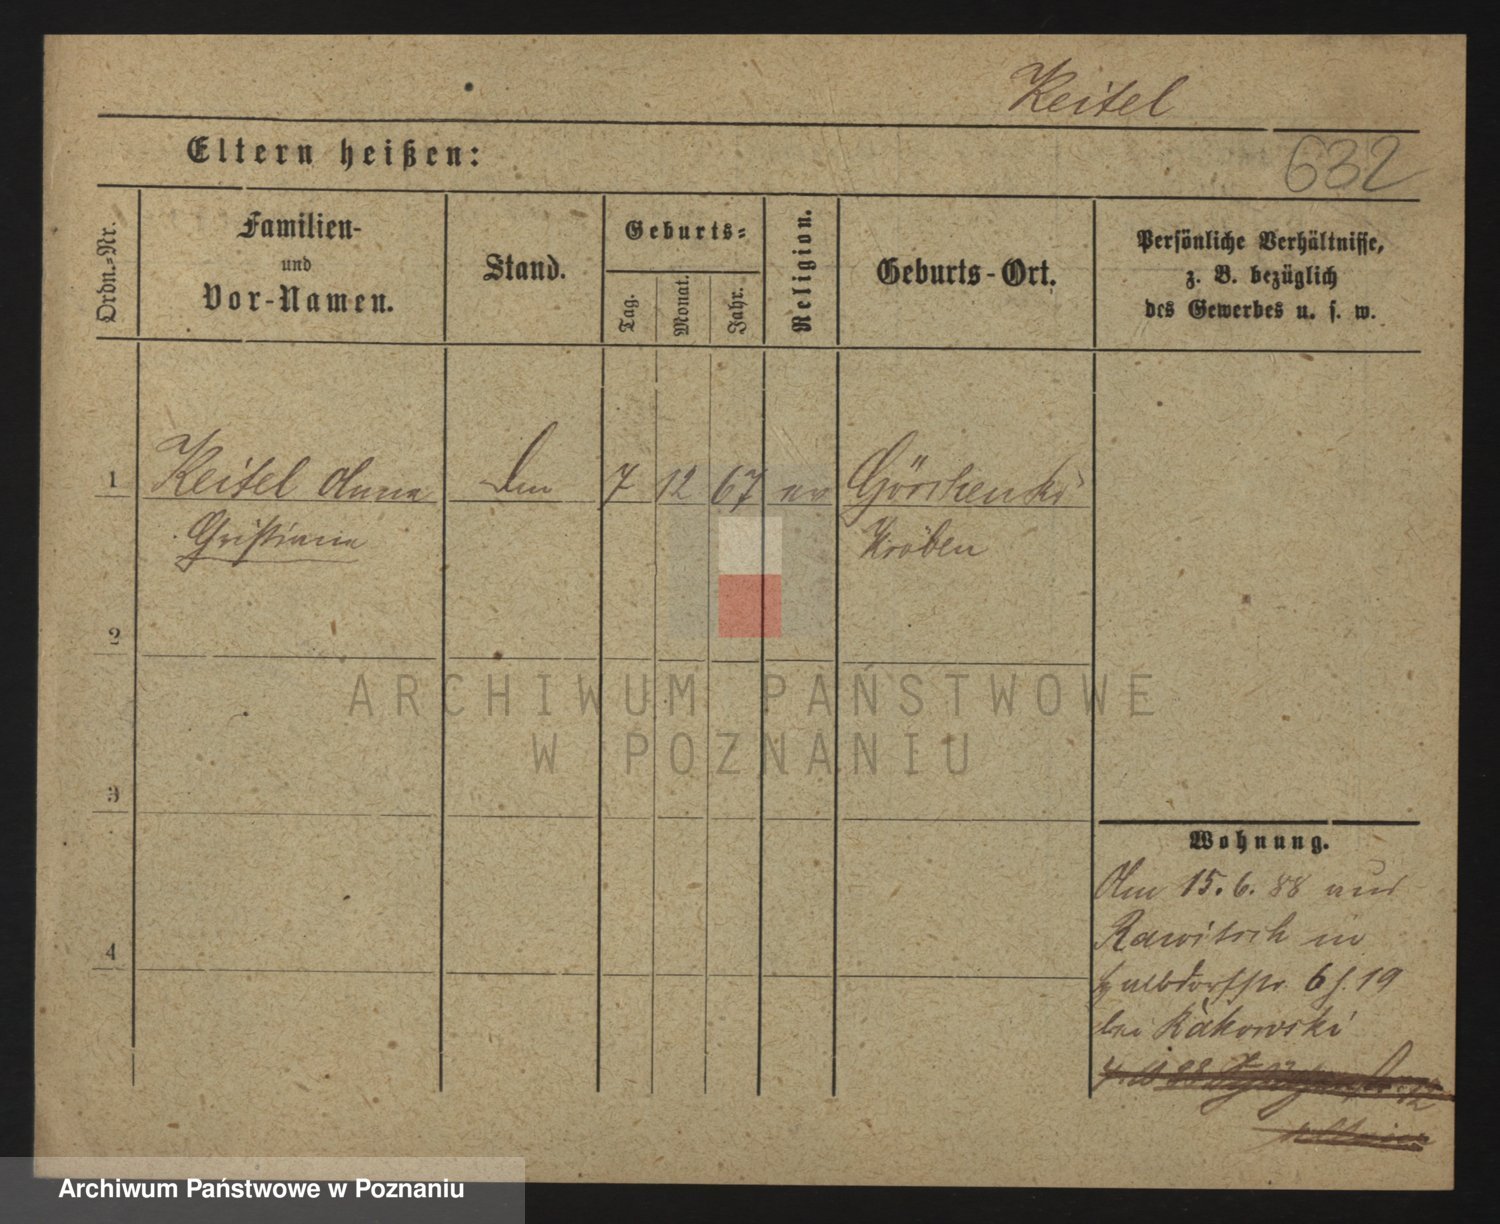 Keitel
Eltern heißen:
632
Ordn.-Nr.
Familien-
und
Vor-Namen.
Stand.
Geburts-
Tag.
Monat.
Jahr.
Religion.
Geburts-Ort.
Persönliche Verhältnisse,
z. B. bezüglich
des Gewerbes u. s. w.
1 Keitel Anna 7 12 67 ev Görchenki
Christiana Kröben
2
ARCHIWUM PAŃSTWOWE
W POZNANIU
3
Wohnung.
Am 15. 6. 88 aus
Rawitsch in
Halbdorfstr. 6 19
bei Rakowski
4
Archiwum Państwowe w Poznaniu